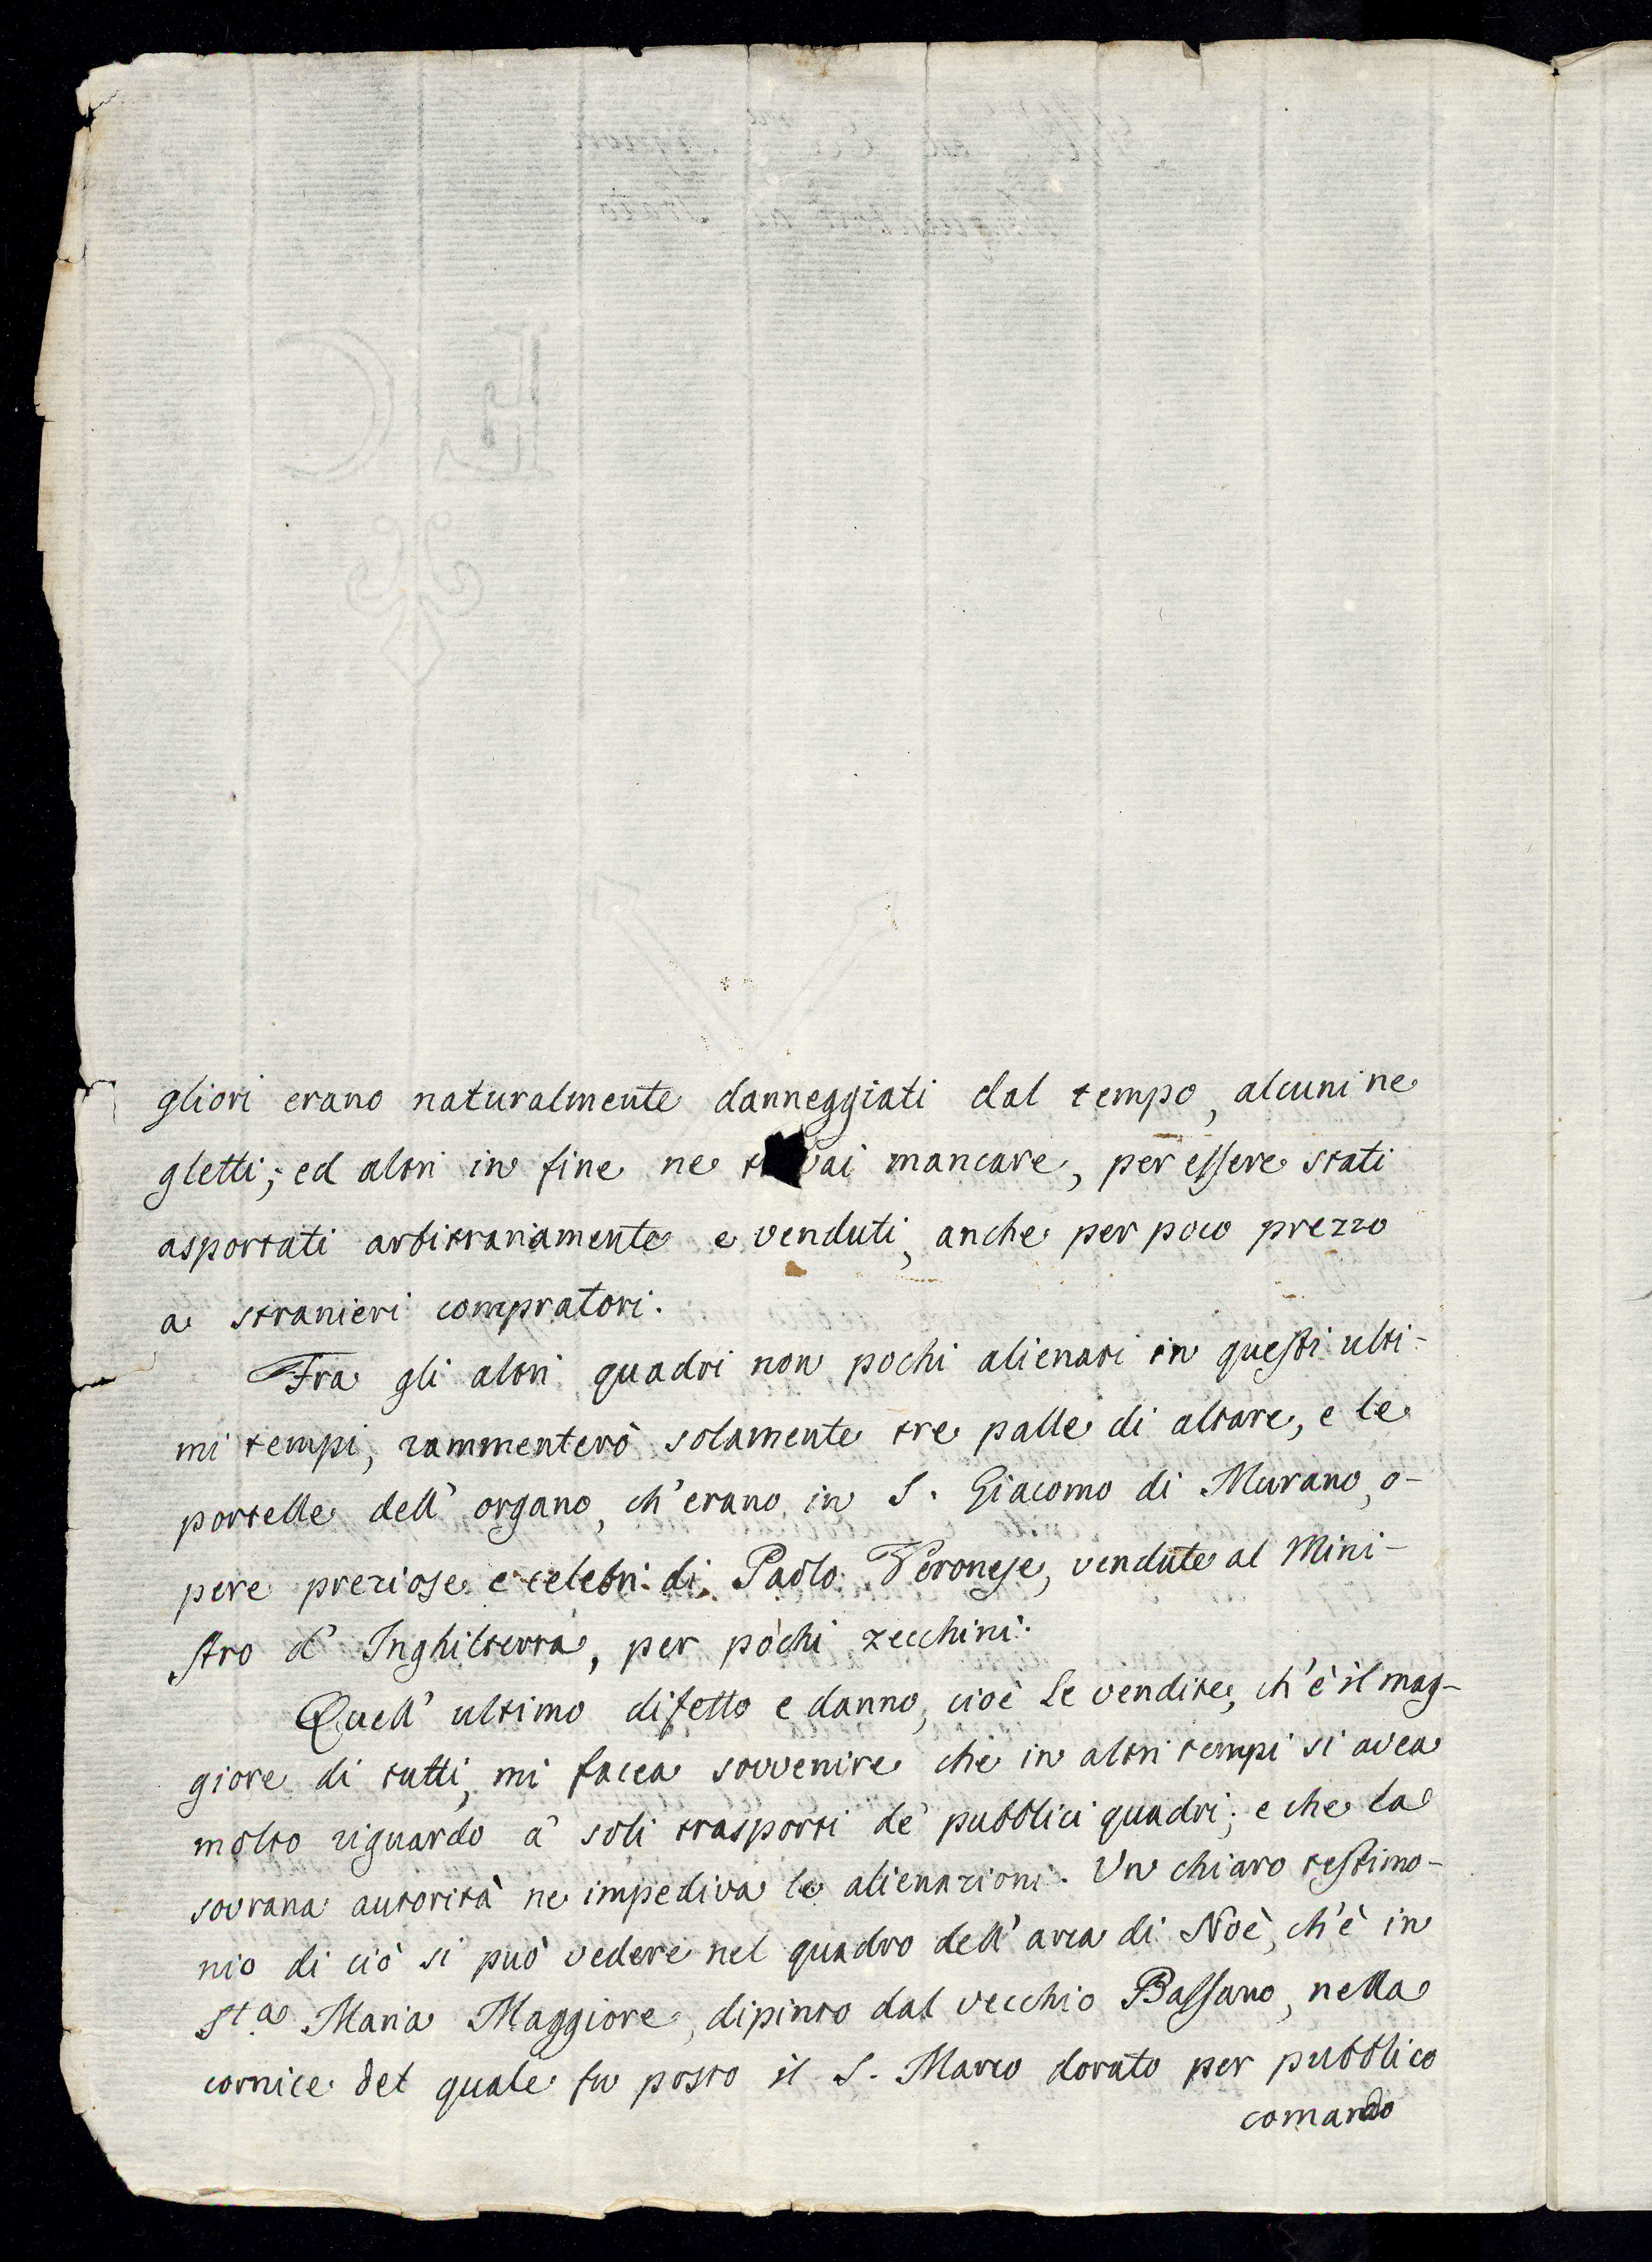 gliori erano naturalmente danneggiati dal tempo, alcuni ne
gletti; ed altri in fine ne vai mancare, per essere stati
asportati arbitrariamente e venduti, anche per poco prezzo
a stranieri compratori.
Fra gli altri quadri non pochi alienati in questi ulti-
mi tempi, rammenterò solamente tre palle di altare, e le
portelle dell' organo, ch'erano in S. Giacomo di Murano, o-
pere preziose e celebri di Paolo Veronese, vendute al Mini-
stro d' Inghilterra, per pochi zecchini.
Quell' ultimo difetto e danno, cioè le vendite, ch'è il mag-
giore di tutti, mi facea sovvenire che in altri tempi si avea
molto riguardo a' soli trasporti de' pubblici quadri; e che la
sovrana autorità ne impediva le alienazioni. Un chiaro testimo-
nio di ciò si può vedere nel quadro dell' arca di Noè, ch'è in
S.ta Maria Maggiore, dipinto dal vecchio Bassano, nella
cornice del quale fu posto il S. Marco dorato per pubblico
comando